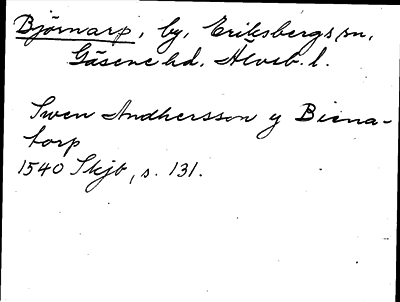 Björnarp, by, Eriksbergs sn,
Gäsene hd, Älvsb. l.
Swen Andhersson y Biena-
torp
1540 Skjb, s. 131.